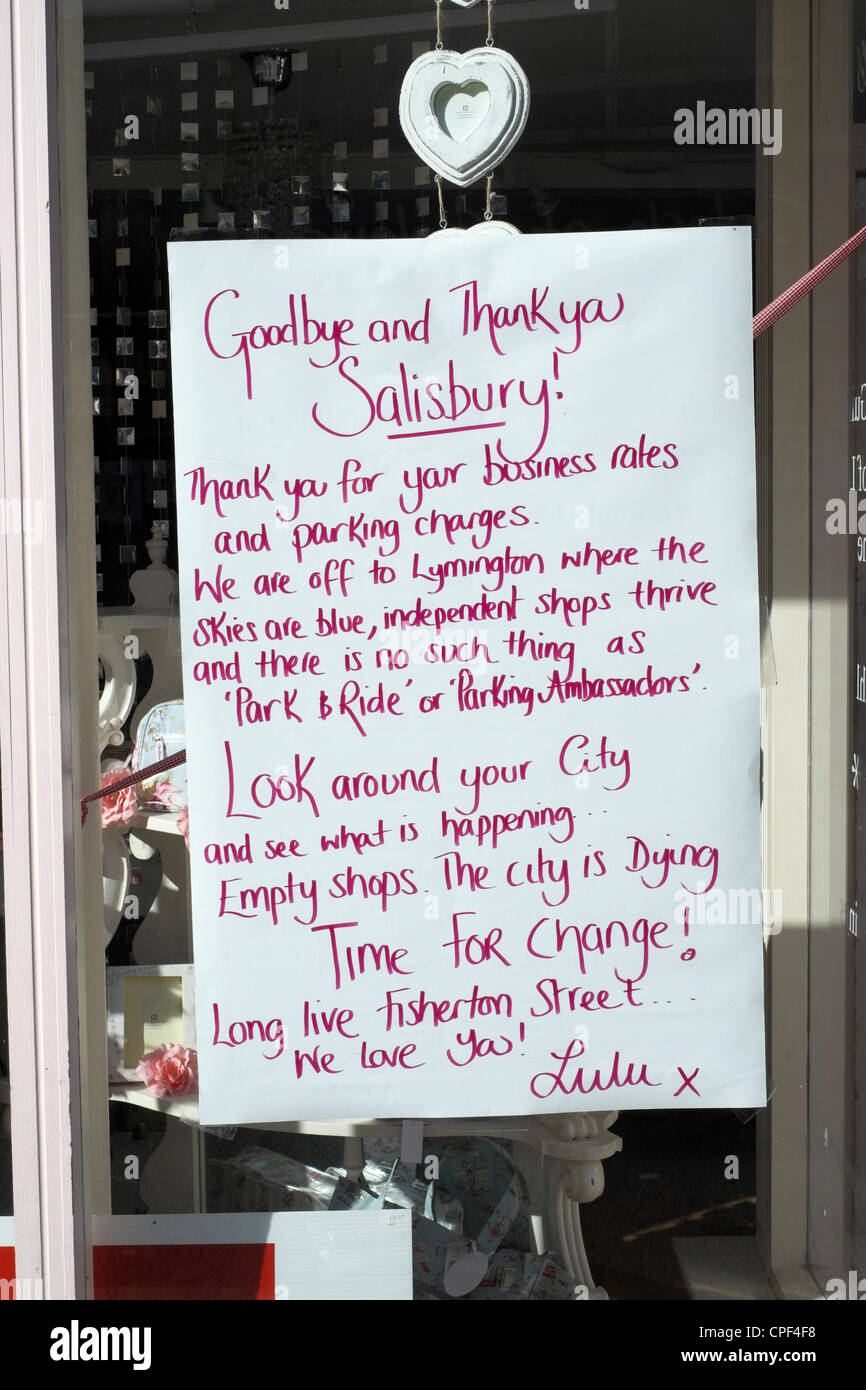 Goodbye and Thank you
Salisbury!
Thank you for your business rates
and parking charges.
We are off to Lymington where the
skies are blue, independent shops thrive
and there is no such thing as
'Park & Ride' or 'Parking Ambassadors'.
Look around your City
and see what is happening...
Empty shops. The city is Dying
Time for Change!
Long live Fisherton Street....
We Love You!
Lulu x
alamy
alamy
Image ID: CPF4F8
www.alamy.com